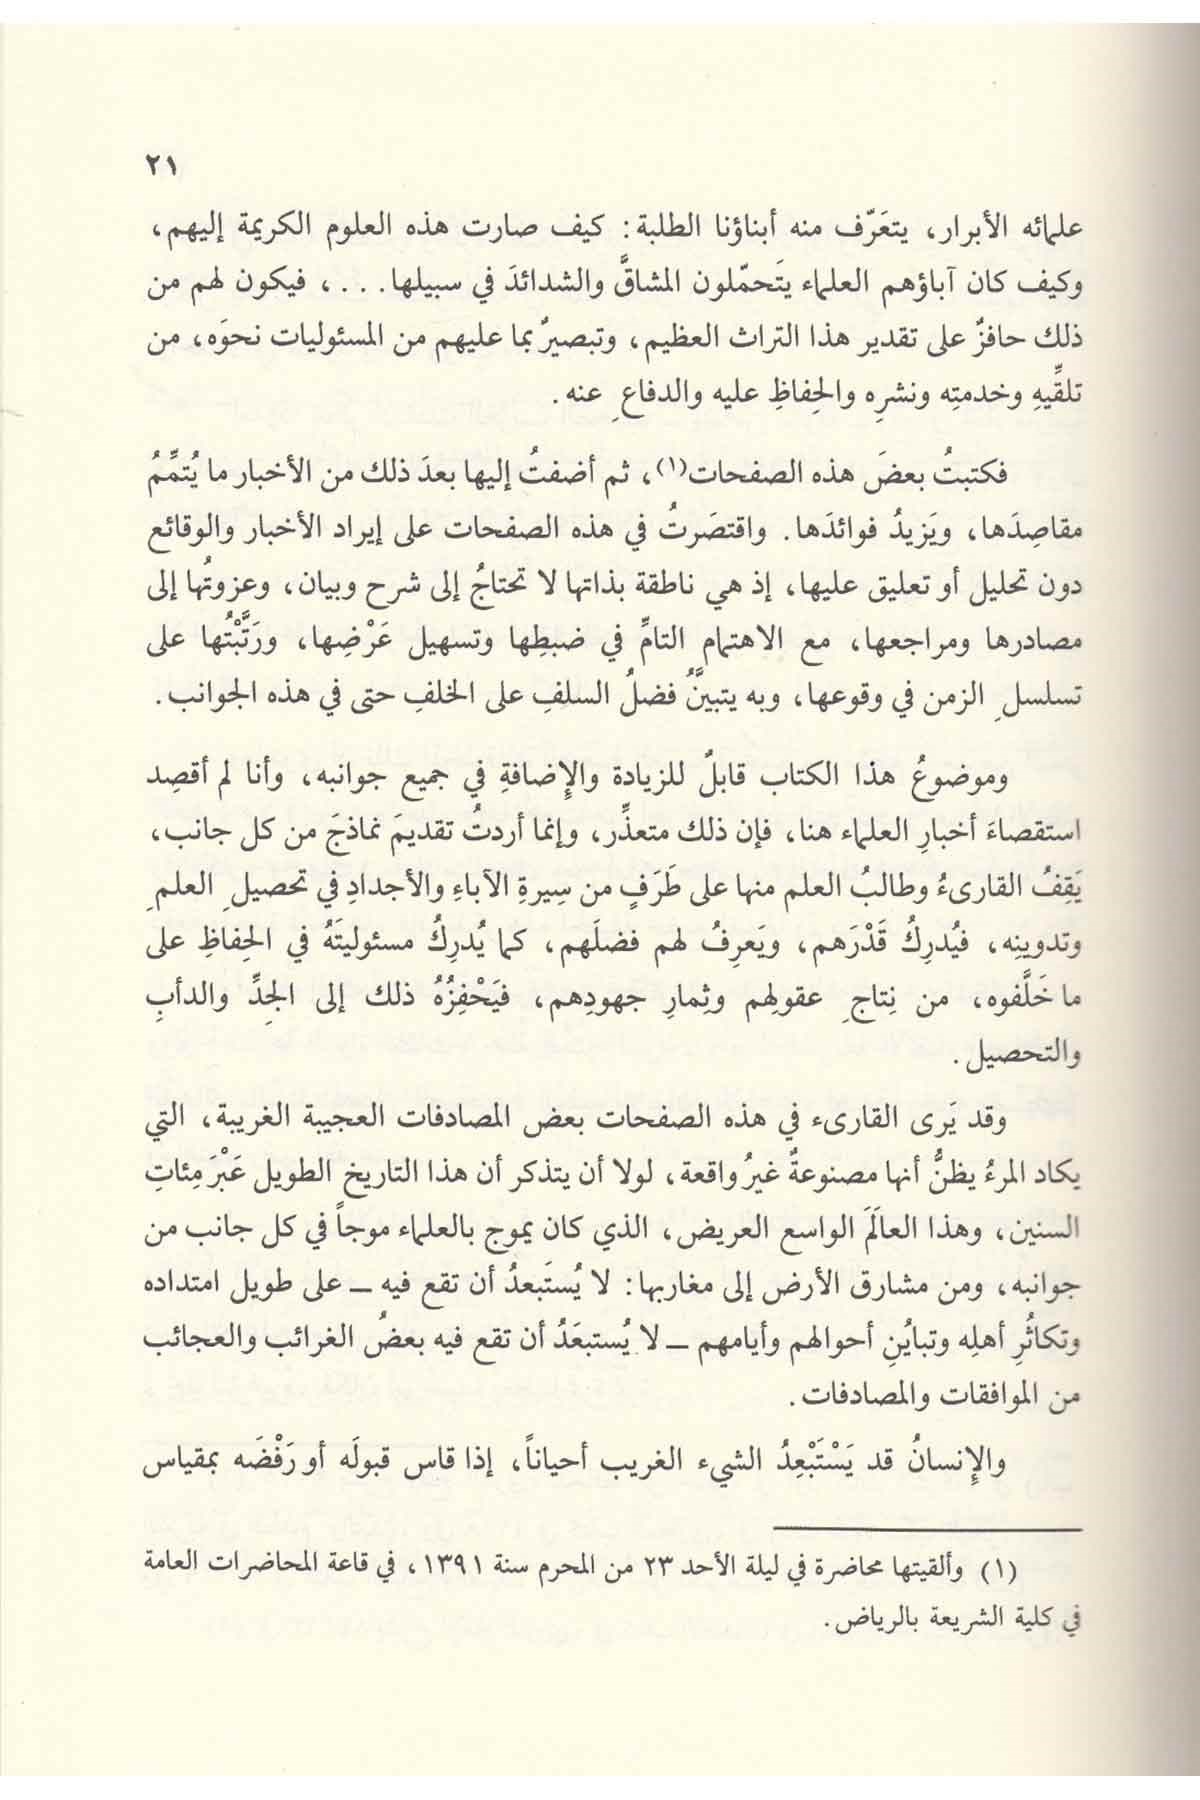 ٢١
علمائه الأبرار، يتعَرّف منه أبناؤنا الطلبة: كيف صارت هذه العلوم الكريمة إليهم،
وكيف كان آباؤهم العلماء يتَحمّلون المشاقَّ والشدائدَ في سبيلها. . .، فيكون لهم من
ذلك حافزٌ على تقدير هذا التراث العظيم، وتبصيرٌ بما عليهم من المسئوليات نحوَه، من
تلقِّيهِ وخدمتِه ونشرِه والحِفاظِ عليه والدفاعِ عنه.
فكتبتُ بعضَ هذه الصفحات(١)، ثم أضفتُ إليها بعدَ ذلك من الأخبار ما يُتمِّمُ
مقاصِدَها، ويَزيدُ فوائدَها. واقتصَرتُ في هذه الصفحات على إيراد الأخبار والوقائع
دون تحليل أو تعليق عليها، إذ هي ناطقة بذاتها لا تحتاجُ إلى شرح وبيان، وعزوتُها إلى
مصادرها ومراجعها، مع الاهتمام التامِّ في ضبطِها وتسهيل عَرْضِها، ورَتَّبْتُها على
تسلسلِ الزمن في وقوعها، وبه يتبينَّ فضلُ السلفِ على الخلفِ حتى في هذه الجوانب.
وموضوعُ هذا الكتاب قابلٌ للزيادة والإضافةِ في جميع جوانبه، وأنا لم أقصِد
استقصاءَ أخبارِ العلماء هنا، فإن ذلك متعذِّر، وإنما أردتُ تقديمَ نماذجَ من كل جانب،
يَقِفُ القارىءُ وطالبُ العلم منها على طَرَفٍ من سِيرةِ الآباءِ والأجدادِ في تحصيلِ العلمِ
وتدوينِه، فيُدرِكُ قَدْرَهم، ويَعرِفُ لهم فضلَهم، كما يُدرِكُ مسئوليتَهُ في الحِفاظِ على
ما خَلَّفوه، من نِتاجِ عقولِهم وثِمارِ جهودِهم، فيَحْفِزُهُ ذلك إلى الجِدِّ والدأبِ
والتحصيل.
وقد يَرى القارىء في هذه الصفحات بعض المصادفات العجيبة الغريبة، التي
يكاد المرءُ يظنُّ أنها مصنوعةٌ غيرُ واقعة، لولا أن يتذكر أن هذا التاريخ الطويل عَبْرَ مِئاتِ
السنين، وهذا العالَمَ الواسع العريض، الذي كان يموج بالعلماء موجاً في كل جانب من
جوانبه، ومن مشارق الأرض إلى مغاربها: لا يُستَبعدُ أن تقع فيه ــ على طويل امتداده
وتكاثُرِ أهلِه وتبايُنِ أحوالهم وأيامهم ــ لا يُستبعَدُ أن تقع فيه بعضُ الغرائب والعجائب
من الموافقات والمصادفات.
والإنسانُ قد يَسْتَبْعِدُ الشيء الغريب أحياناً، إذا قاس قبولَه أو رَفْضَه بمقياس
(١) وألقيتها محاضرة في ليلة الأحد ٢٣ من المحرم سنة ١٣٩١، في قاعة المحاضرات العامة
في كلية الشريعة بالرياض.